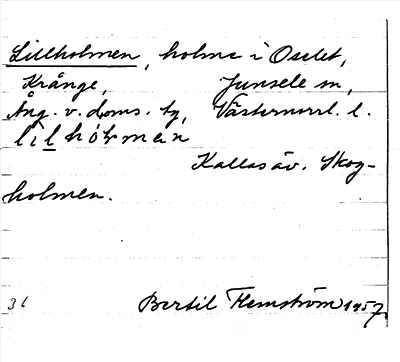 Lillholmen, holme i Oselet,
Krånge, Junsele sn,
Ång. v. doms. tg, Västernorrl. l.
Kallas äv. Skog-
holmen.
36 Bertil Flemström 1957